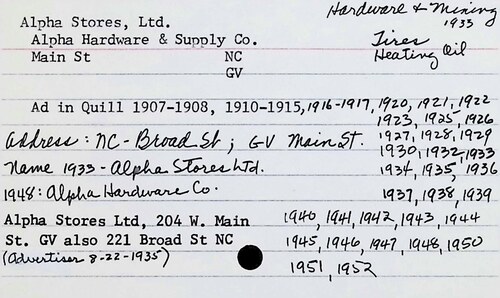 Hardware & Mining
1933
Alpha Stores, Ltd.
Alpha Hardware & Supply Co.
Tires
Main St NC
Heating Oil
GV
Ad in Quill 1907-1908, 1910-1915, 1916-1917, 1920, 1921, 1922
1923, 1925, 1926
Address: NC - Broad St; GV Main St. 1927, 1928, 1929
1930, 1932, 1933
Name 1933 - Alpha Stores Ltd. 1934, 1935, 1936
1948: Alpha Hardware Co. 1937, 1938, 1939
Alpha Stores Ltd, 204 W. Main 1940, 1941, 1942, 1943, 1944
St. GV also 221 Broad St NC 1945, 1946, 1947, 1948, 1950
(Advertiser 8-22-1935)
1951, 1952